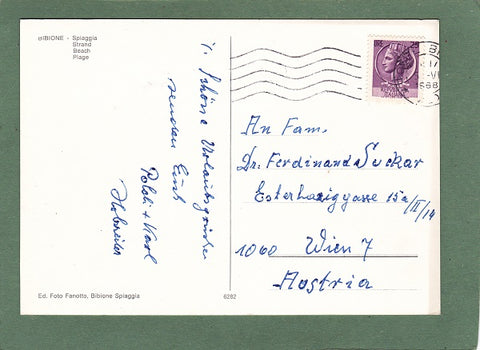 BIBIONE - Spiaggia
Strand
Beach
Plage
Schöne Urlaubsgrüße
senden Euch
Poldi + Karl
An Fam.
Dr. Ferdinand Suckar
Esterhazygasse 15a/II/14
1060 Wien 7
Austria
Ed. Foto Fanotto, Bibione Spiaggia
6282